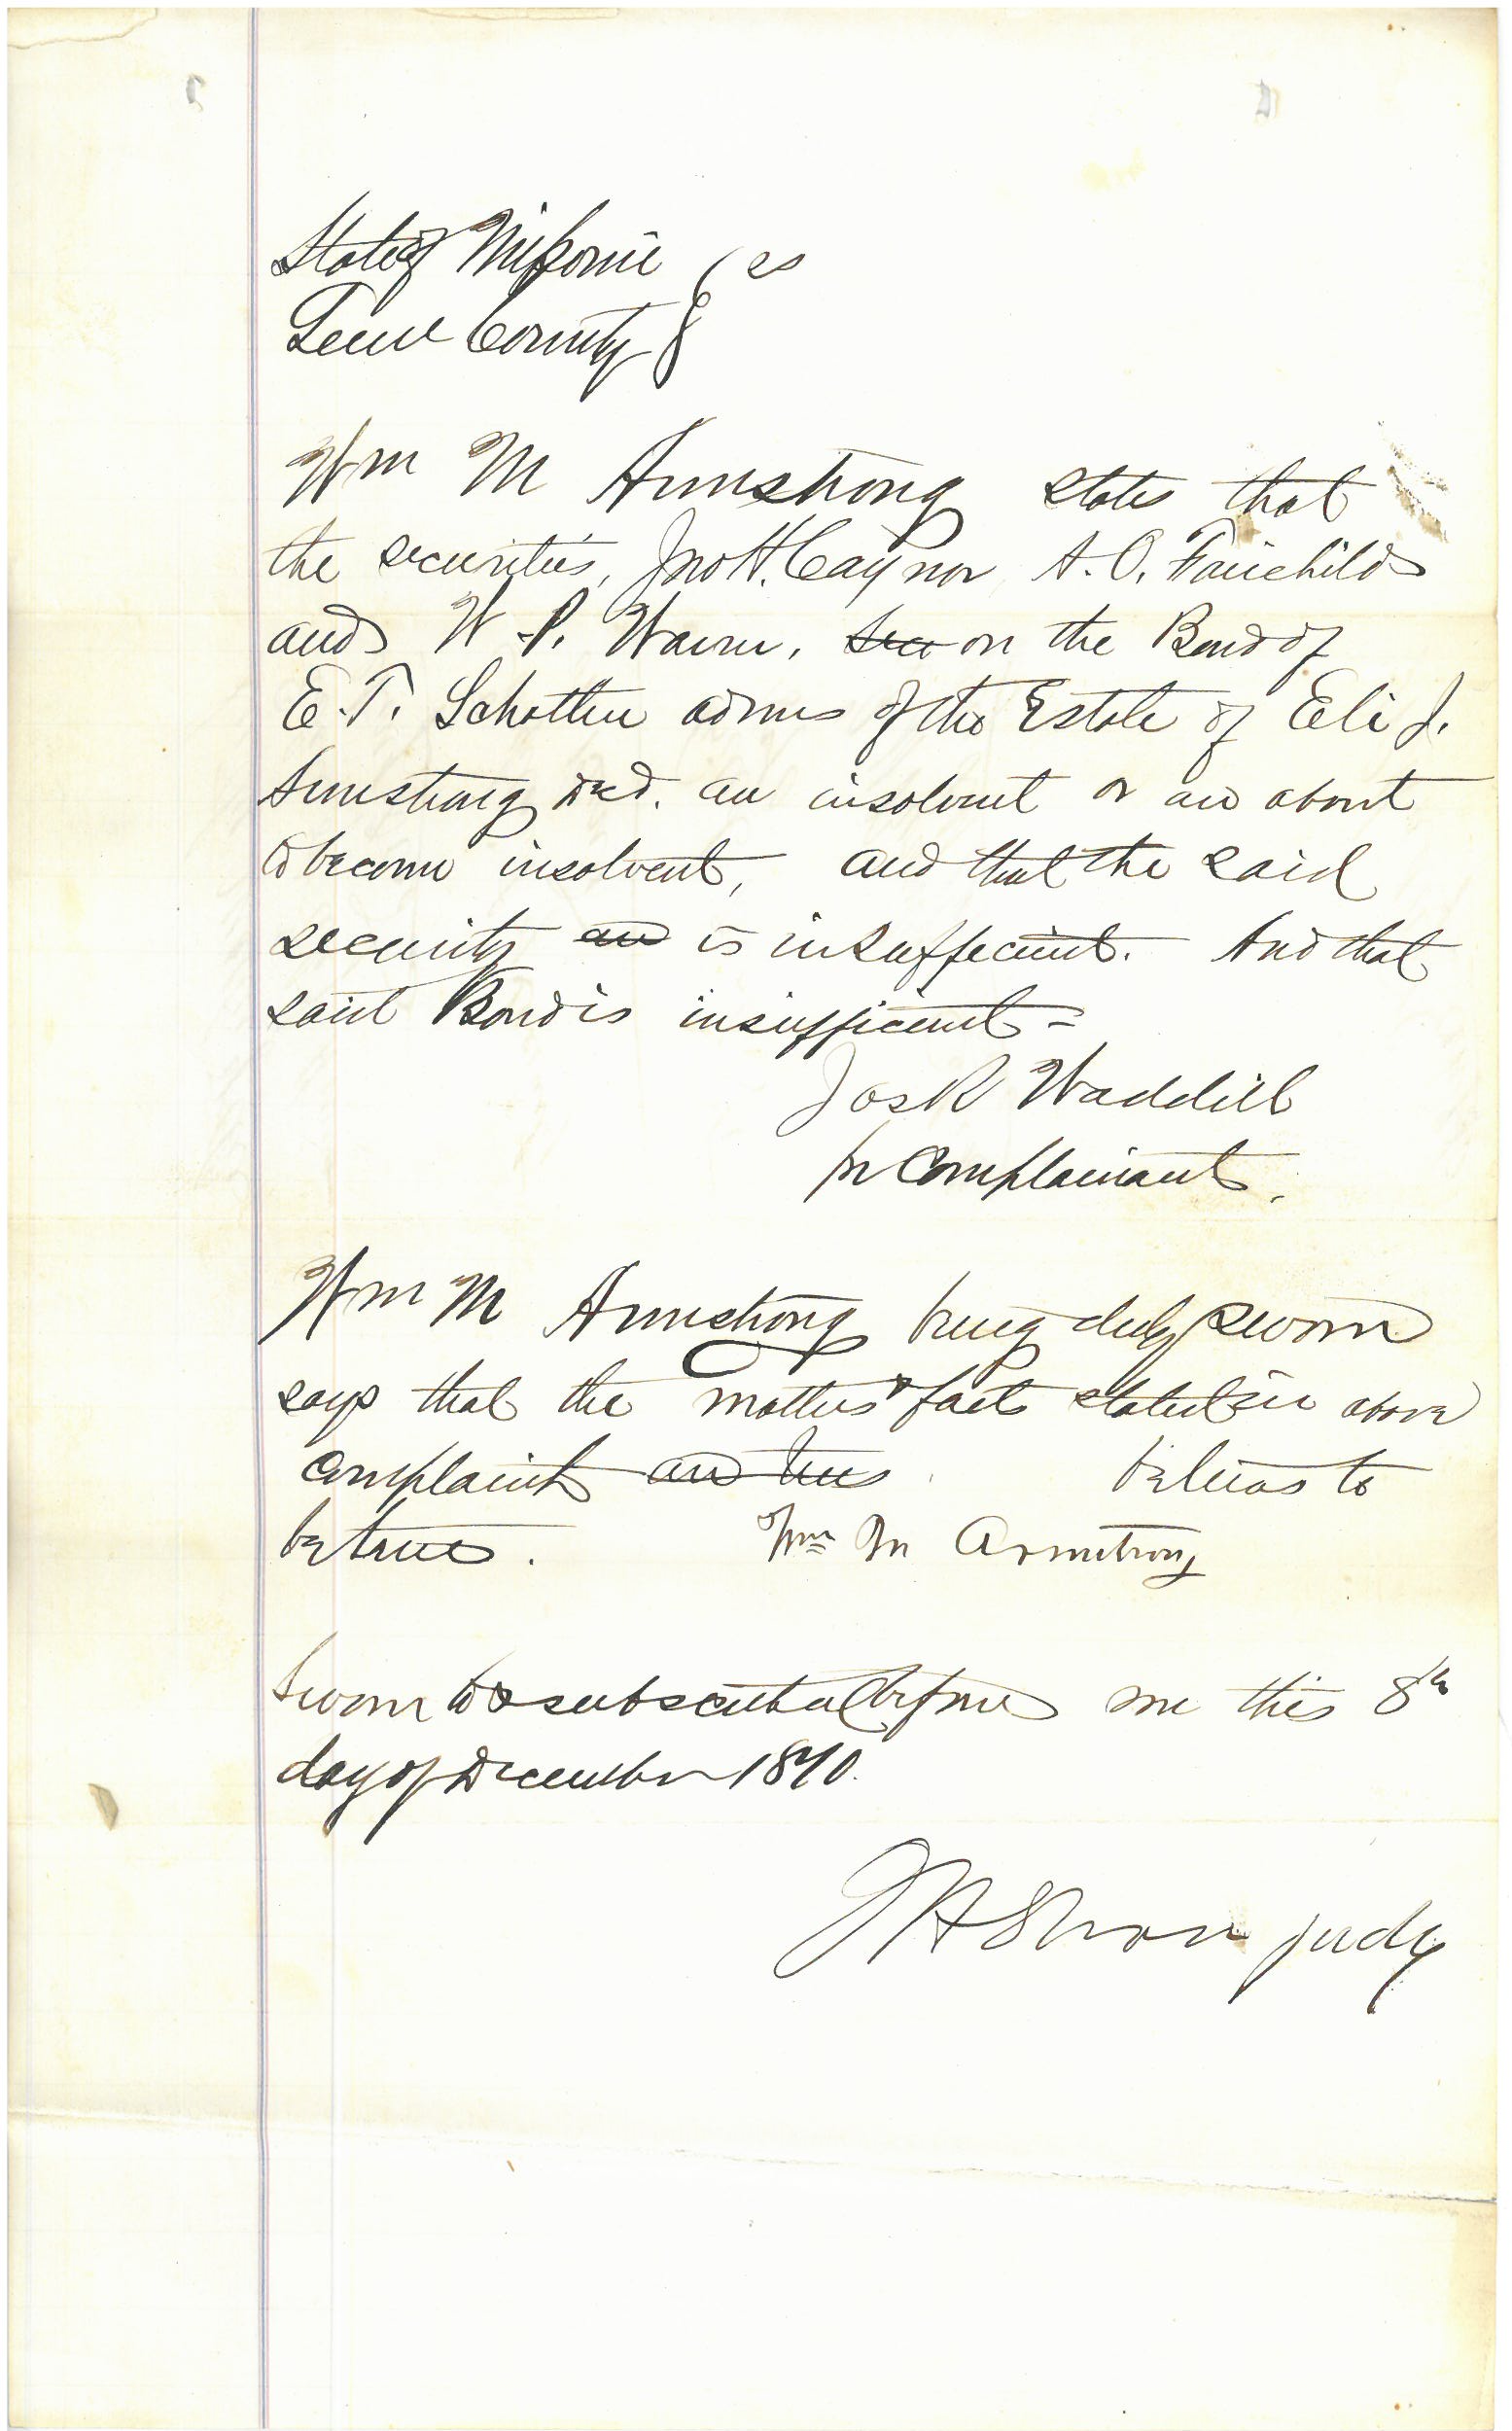 State of Missouri ( ss
Greene County }
Wm M Armstrong states that
the securities, Jno H. Caynor A. O. Fairchild
and W P. Warren, Sec on the Bond of
E. T. Schotten admr of the Estate of Eli J.
Armstrong decd. are insolvent or are about
to become insolvent, and that the said
security are is insuffecient. And that
said Bond is insufficient =
Jas R Waddill
for Complainant.
Wm M Armstrong being duly sworn
says that the matters & facts stated in above
complaint are true believes to
be true. Wm M Armstrong
Sworn to & subscribed before me this 8th
day of December 1870.
judge